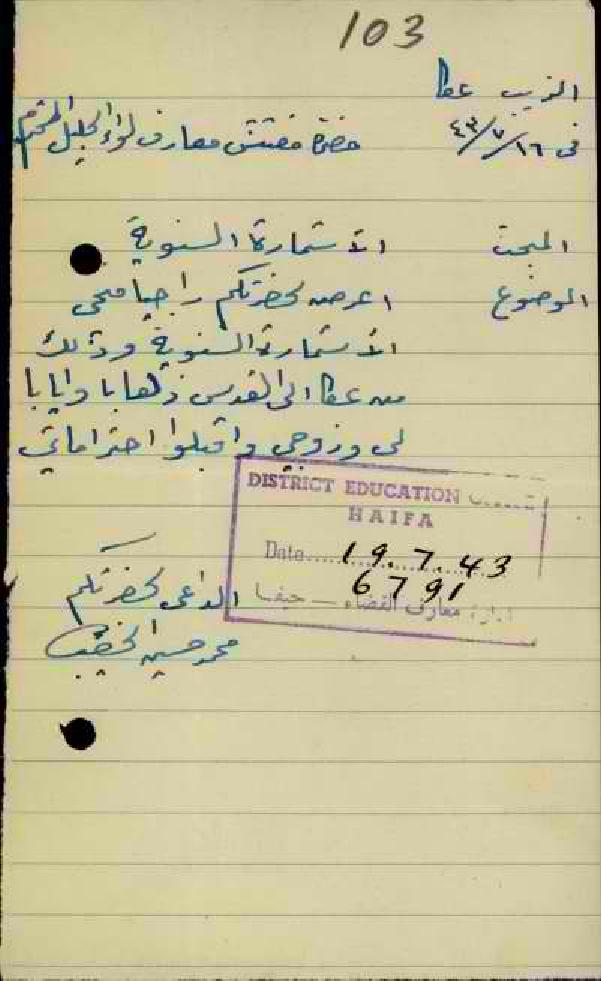 103
الزيب عكا
في ١٦/٧/٤٣ حضرة مفتش معارف لواء الجليل المحترم
المبحث الاستمارة السنوية
الموضوع اعرض لحضرتكم راجيا منحي
الاستمارة السنوية وذلك
من عكا الى القدس ذهابا وايابا
لي وزوجي واقبلوا احتراماتي
DISTRICT EDUCATION
HAIFA
Date 19.7.43
6791
ادارة معارف القضاء — حيفا
الداعي لحضرتكم
محمد حسين الخطيب